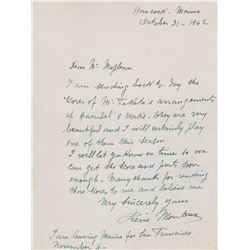 Hancock. Maine
October 31 - 1942
Dear Mr
I am sending back to-day the
scores of Mr Fekete's arrangements
of Haendel's works. They are very
beautiful and I will certainly play
one of them this season
I will let you know on time so we
can get the score and parts soon
enough. Many thanks for sending
those scores to me and believe me
Very Sincerely yours
Pierre Monteux
I am leaving Maine for San Francisco
November